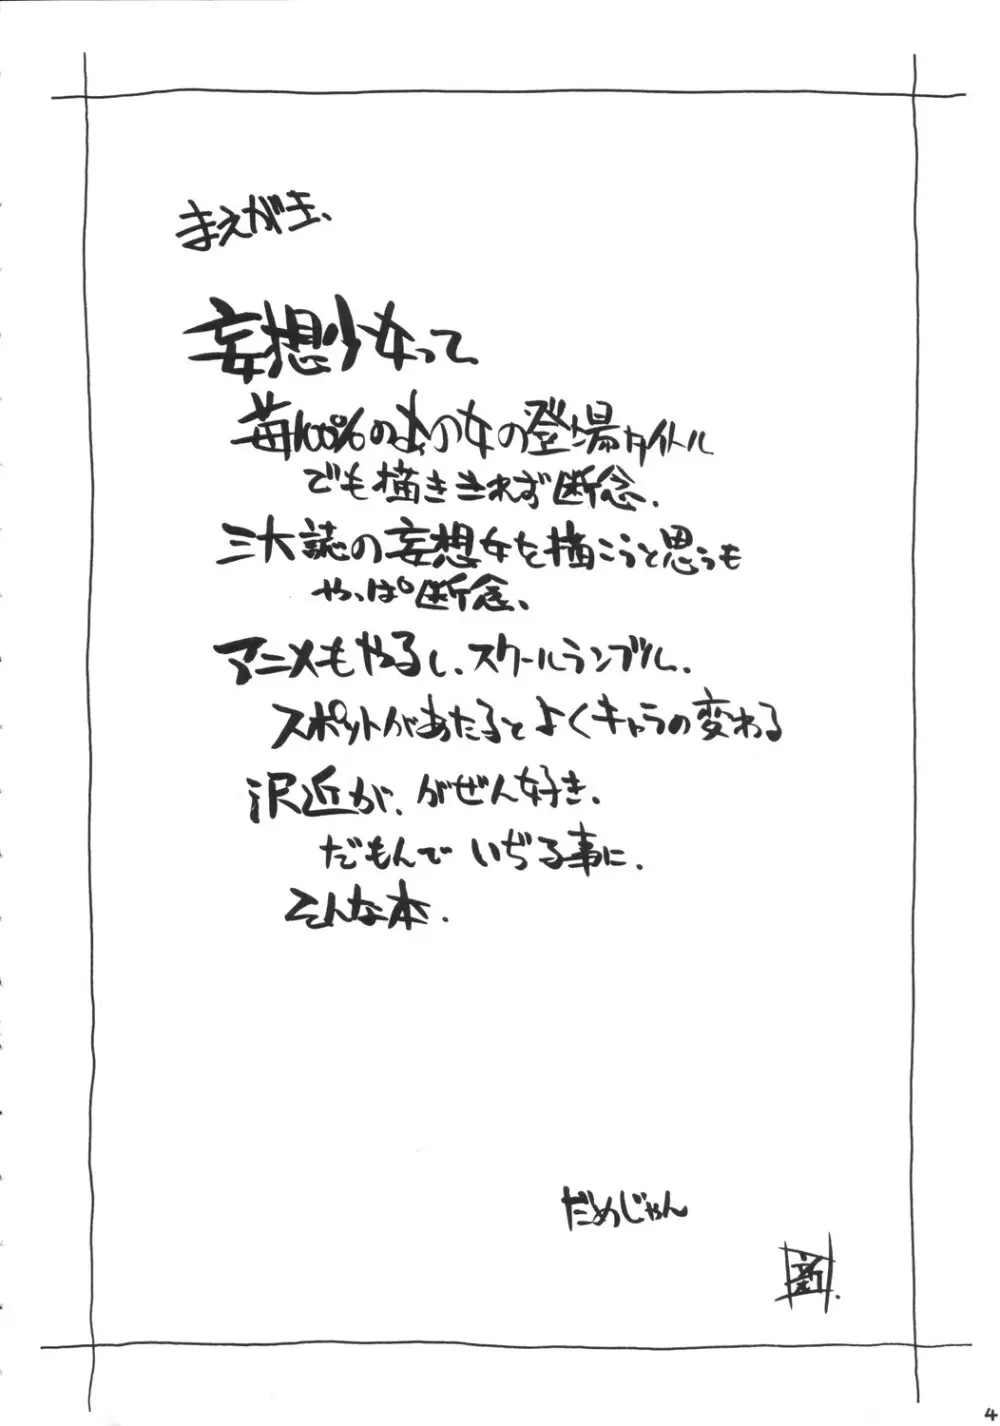 まえがき、
妄想少女って
苺100%のあの女の登場タイトル
でも描ききれず断念.
三大誌の妄想女を描こうと思うも
やっぱ断念、
アニメもやるし、スクールランブル、
スポットがあたるとよくキャラの変わる
沢近が、がぜん好き、
だもんでいぢる事に.
そんな本.
だめじゃん
新.
4